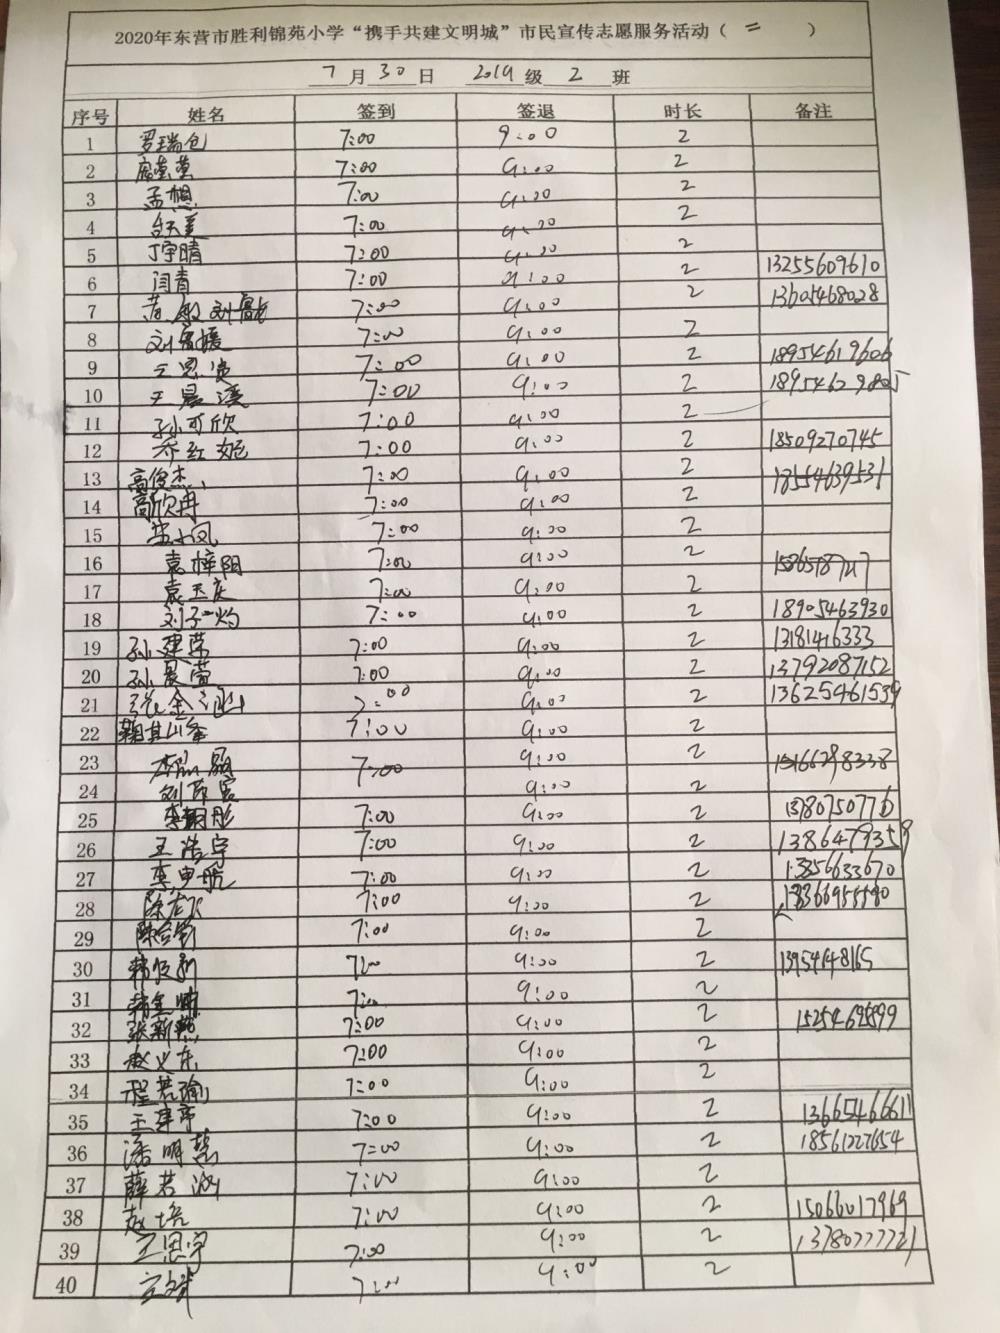 2020年东营市胜利锦苑小学“携手共建文明城”市民宣传志愿服务活动（ 二 ）
7月30日 2019级 2 班
序号 姓名 签到 签退 时长 备注
1 罗瑞仓 7:00 9:00 2
2 7:00 9:00 2
3 孟想 7:00 9:00 2
4 7:00 9:00 2
5 丁宇晴 7:00 9:00 2
6 闫青 7:00 9:00 2 13255609610
7 7:00 9:00 2 13605468028
8 7:00 9:00 2
9 王思 7:00 9:00 2 18954619606
10 王晨 7:00 9:00 2
11 孙可欣 7:00 9:00 2
12 乔红 7:00 9:00 2 18509270745
13 高俊杰 7:00 9:00 2 18554639531
14 高欣冉 7:00 9:00 2
15 7:00 9:00 2
16 袁梓阳 7:00 9:00 2
17 袁玉庆 7:00 9:00 2
18 刘子灼 7:00 9:00 2 18905463930
19 孙建荣 7:00 9:00 2 13181416333
20 孙晨萱 7:00 9:00 2 13792087152
21 张金 7:00 9:00 2 13625461539
22 鞠其山 7:00 9:00 2
23 7:00 9:00 2 15166298338
24 9:00 2
25 7:00 9:00 2 13780750776
26 王浩宇 7:00 9:00 2
27 李申航 7:00 9:00 2 13856633670
28 陈龙飞 7:00 9:00 2 13366955580
29 7:00 9:00 2
30 韩俊 7:00 9:00 2 13954648165
31 7:00 9:00 2
32 张新燕 7:00 9:00 2
33 赵义东 7:00 9:00 2
34 程若瑜 7:00 9:00 2
35 王建 7:00 9:00 2 13665466611
36 潘明慧 7:00 9:00 2 18561227654
37 薛若 7:00 9:00 2
38 赵培 7:00 9:00 2 15066017969
39 王思宇 7:00 9:00 2 13780777721
40 7:00 9:00 2